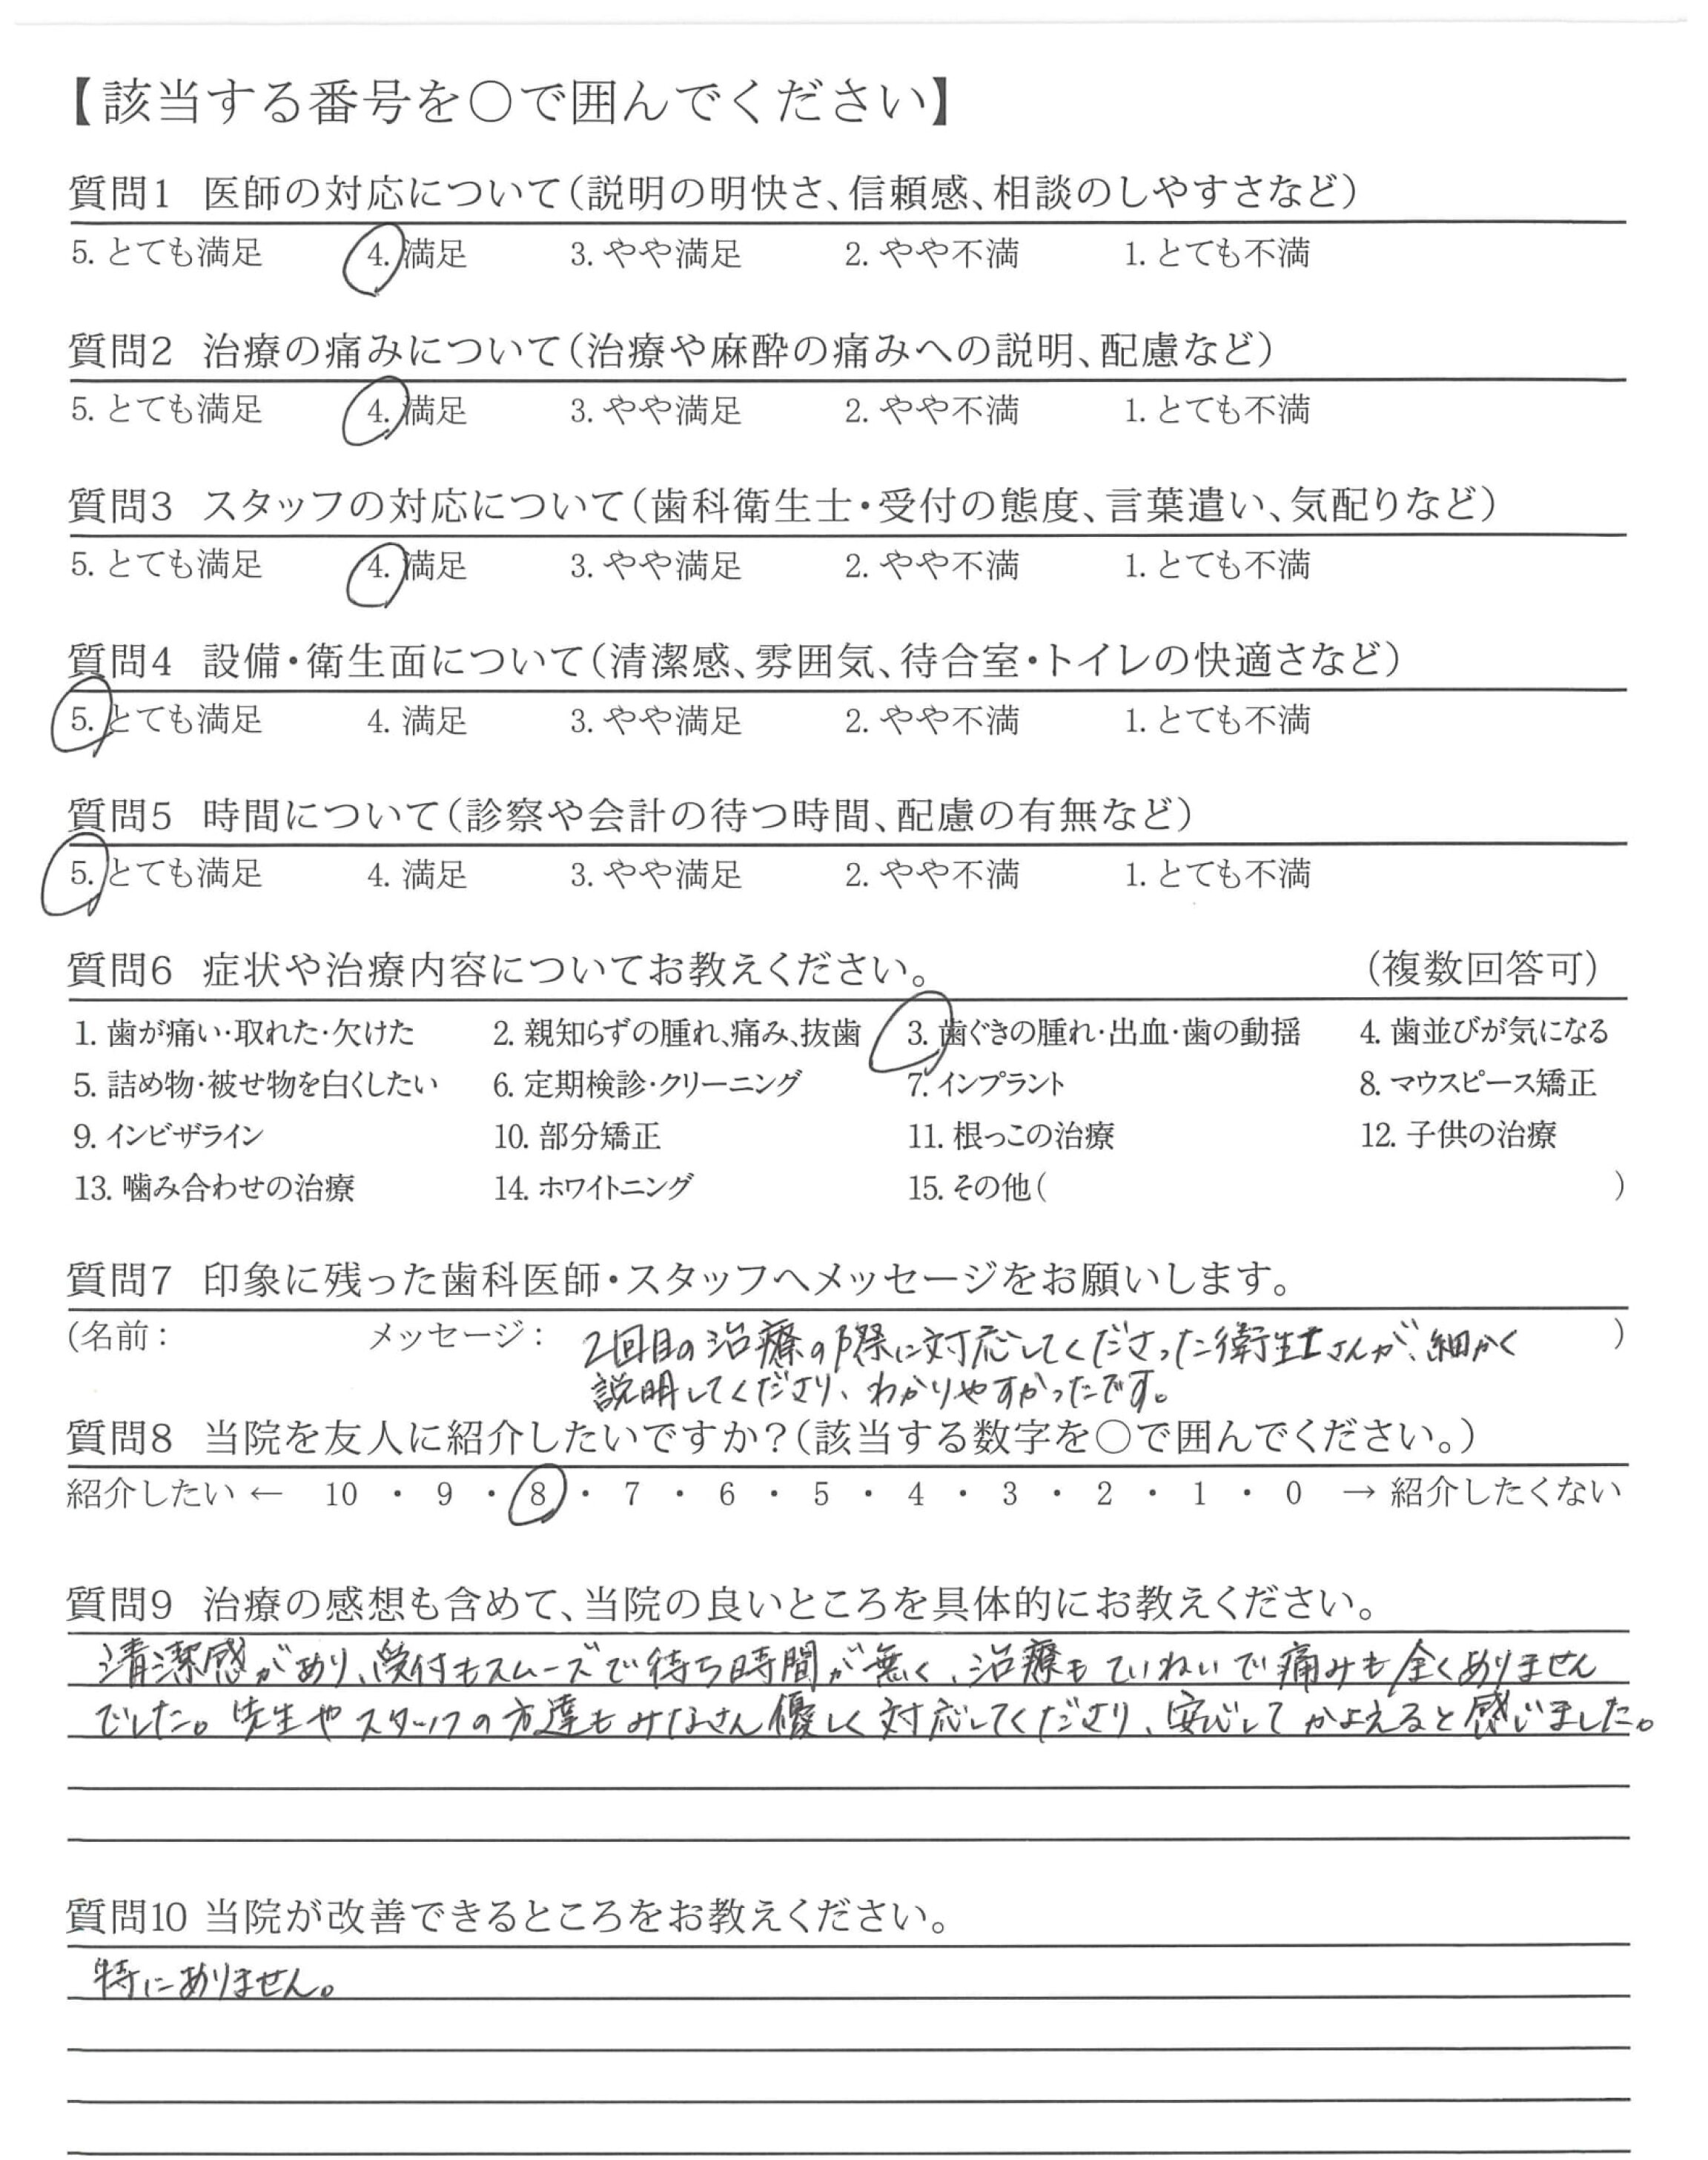 【該当する番号を○で囲んでください】
質問1 医師の対応について(説明の明快さ、信頼感、相談のしやすさなど)
5. とても満足 4. 満足 3. やや満足 2. やや不満 1. とても不満
質問2 治療の痛みについて(治療や麻酔の痛みへの説明、配慮など)
5. とても満足 4. 満足 3. やや満足 2. やや不満 1. とても不満
質問3 スタッフの対応について(歯科衛生士・受付の態度、言葉遣い、気配りなど)
5. とても満足 4. 満足 3. やや満足 2. やや不満 1. とても不満
質問4 設備・衛生面について(清潔感、雰囲気、待合室・トイレの快適さなど)
5. とても満足 4. 満足 3. やや満足 2. やや不満 1. とても不満
質問5 時間について(診察や会計の待つ時間、配慮の有無など)
5. とても満足 4. 満足 3. やや満足 2. やや不満 1. とても不満
質問6 症状や治療内容についてお教えください。 (複数回答可)
1. 歯が痛い・取れた・欠けた 2. 親知らずの腫れ、痛み、抜歯 3. 歯ぐきの腫れ・出血・歯の動揺 4. 歯並びが気になる
5. 詰め物・被せ物を白くしたい 6. 定期検診・クリーニング 7. インプラント 8. マウスピース矯正
9. インビザライン 10. 部分矯正 11. 根っこの治療 12. 子供の治療
13. 噛み合わせの治療 14. ホワイトニング 15. その他( )
質問7 印象に残った歯科医師・スタッフへメッセージをお願いします。
(名前: メッセージ: 2回目の治療の際に対応してくださった衛生士さんが、細かく )
説明してくださり、わかりやすかったです。
質問8 当院を友人に紹介したいですか?(該当する数字を○で囲んでください。)
紹介したい ← 10 ・ 9 ・ 8 ・ 7 ・ 6 ・ 5 ・ 4 ・ 3 ・ 2 ・ 1 ・ 0 → 紹介したくない
質問9 治療の感想も含めて、当院の良いところを具体的にお教えください。
清潔感があり、受付もスムーズで待ち時間が無く、治療もていねいで痛みも全くありません
でした。先生やスタッフの方達もみなさん優しく対応してくださり、安心してかよえると感じました。
質問10 当院が改善できるところをお教えください。
特にありません。